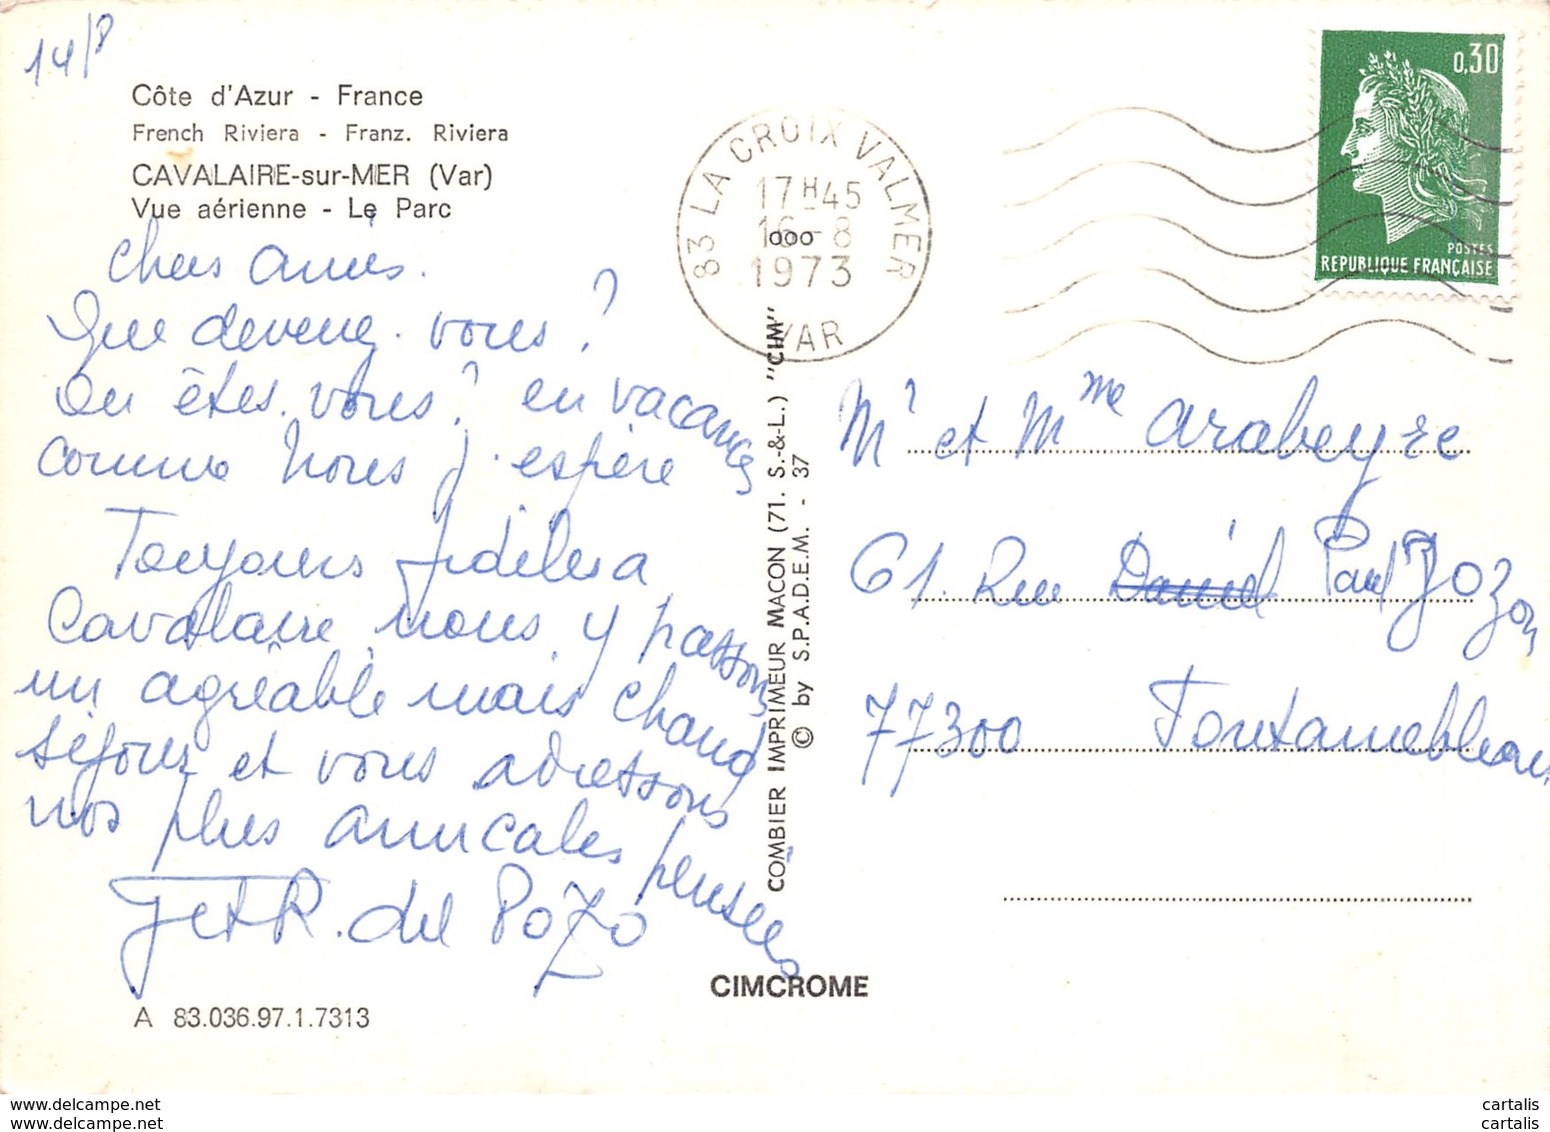 14/8
Côte d'Azur - France
French Riviera - Franz. Riviera
CAVALAIRE-sur-MER (Var)
Vue aérienne - Le Parc
Chers amis.
Que devenez-vous ?
Ou êtes-vous ? en vacances
comme nous j'espère
Toujours fidèles a
Cavalaire, nous y passons
un agréable mais chaud
séjour et vous adressons
nos plus amicales pensées
J et R. del Pozo
A 83.036.97.1.7313
CIMCROME
COMBIER IMPRIMEUR MACON (71. S.-&-L.) "CIM"
© by S.P.A.D.E.M. - 37
83 LA CROIX VALMER
17H45
16-8
000
1973
VAR
0,30
POSTES
REPUBLIQUE FRANÇAISE
Mr et Mme Arabeyre
61. Rue Daniel Paul Jozon
77300 Fontainebleau
www.delcampe.net
website@delcampe.net
cartalis
cartalis